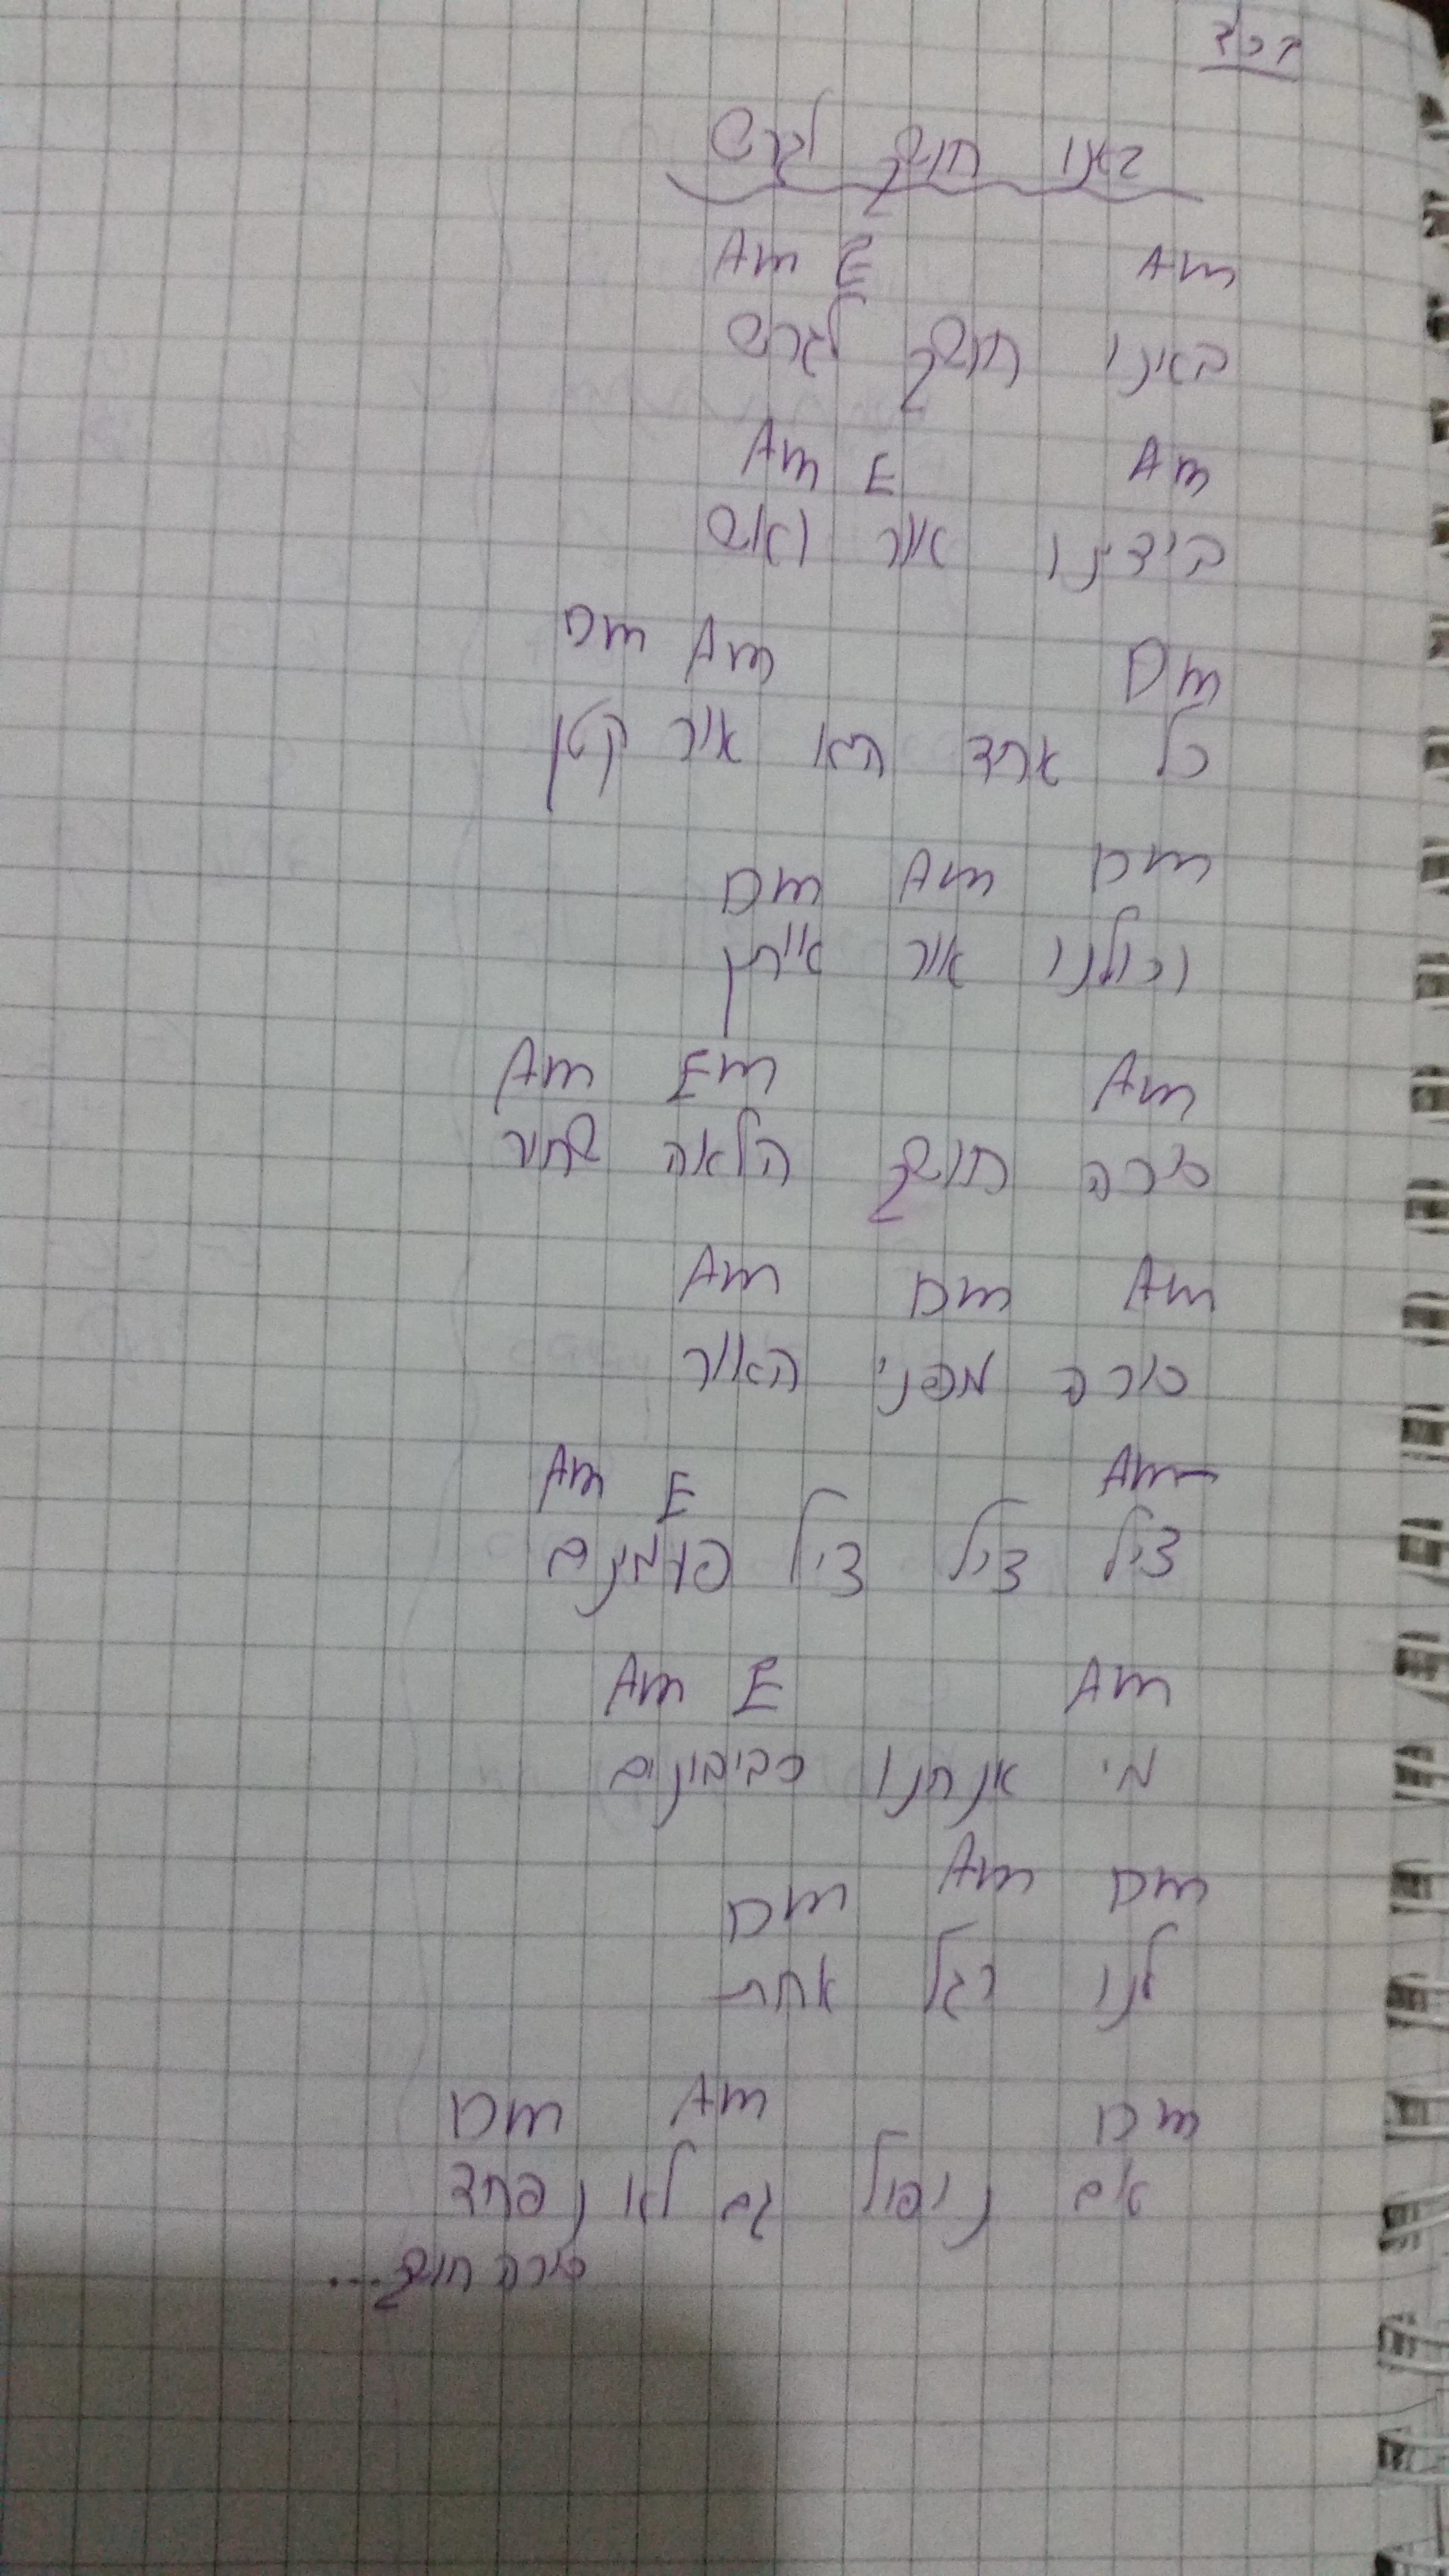 בסד
באנו חושך לגרש
Am E Am
באינו חושך לגרש
Am E Am
בידינו אור ואש
Dm Am Dm
כל אחד הוא אור קטן
Dm Am Dm
וכולנו אור אייתן
Am Em Am
סורה חושך הלאה שחור
Am Dm Am
סורה מפני האור
Am E Am
ציל ציל ציל פעמונים
Am E Am
מי אנחנו סביבונים
Dm Am Dm
לנו רגל אחת
Dm Am Dm
אם ניפול גם לא נפחד
סורה חושך...